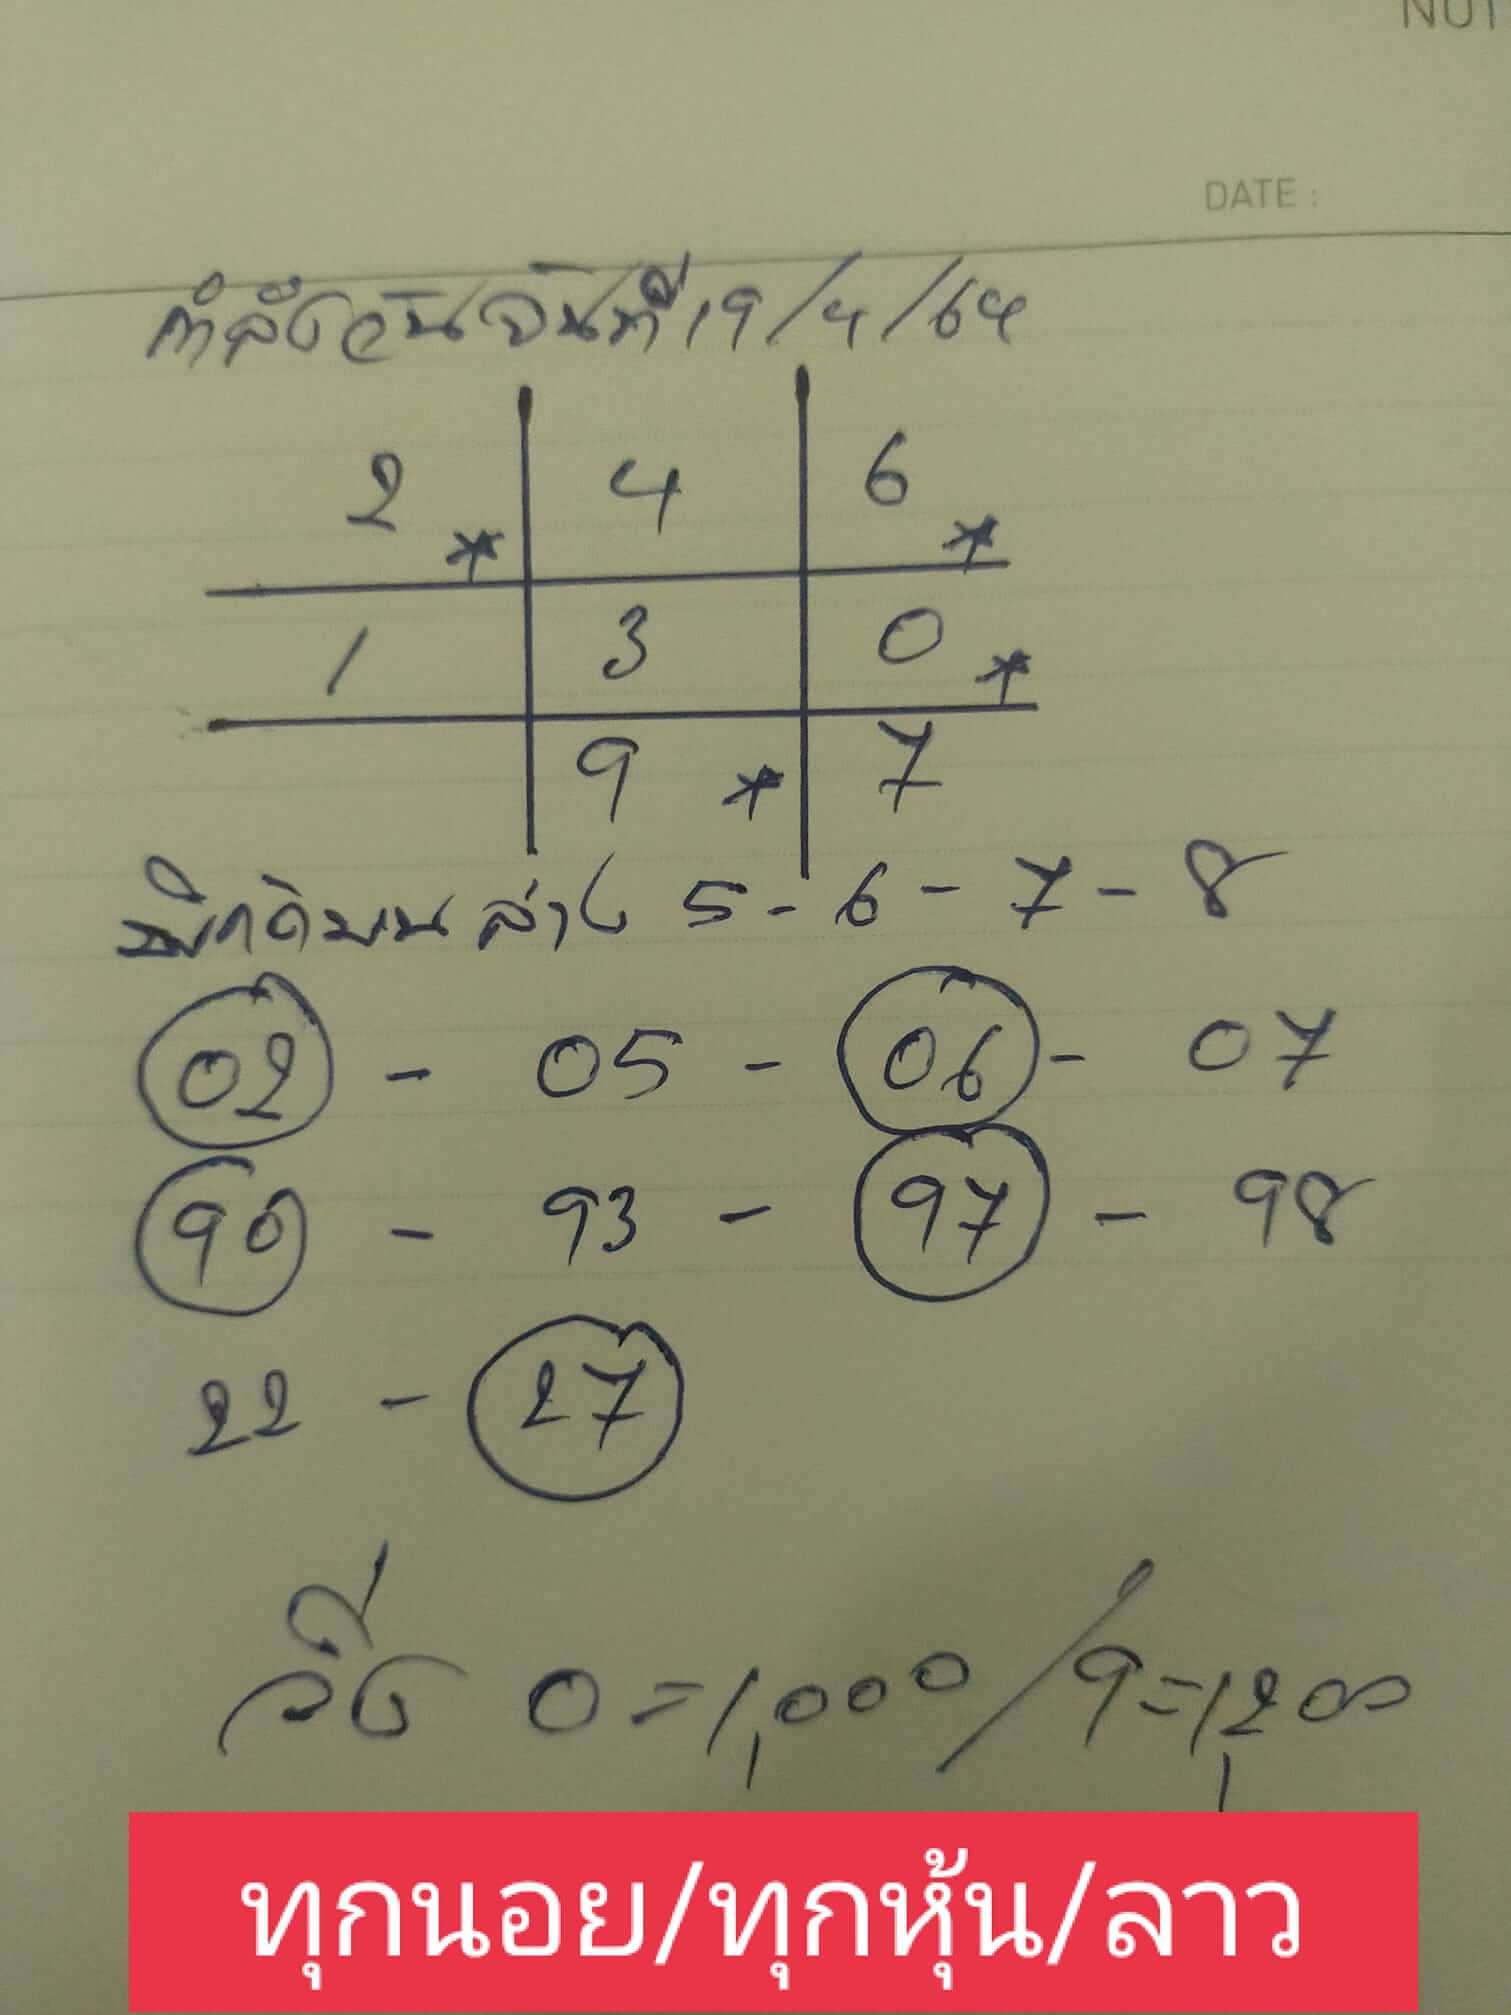 NOT
DATE :
กำลังวันจันที่ 19/4/64
2 * 4 6 *
1 3 0 *
9 * 7
พิกัดบนล่าง 5-6-7-8
02 - 05 - 06 - 07
90 - 93 - 97 - 98
22 - 27
วิ่ง 0=1,000/9=1,200
ทุกนอย/ทุกหุ้น/ลาว